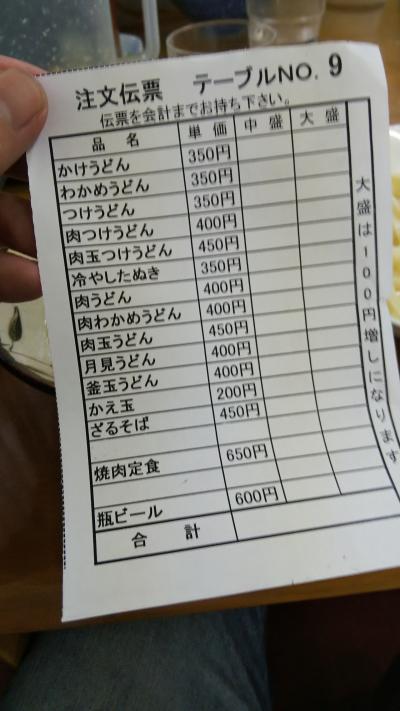 注文伝票 テーブルNO. 9
伝票を会計までお持ち下さい。
品名 単価 中盛 大盛
かけうどん 350円
わかめうどん 350円
つけうどん 350円
肉つけうどん 400円
肉玉つけうどん 450円
冷やしたぬき 350円
肉うどん 400円
肉わかめうどん 400円
肉玉うどん 450円
月見うどん 400円
釜玉うどん 400円
かえ玉 200円
ざるそば 450円
焼肉定食 650円
瓶ビール 600円
合計
大盛は100円増しになります